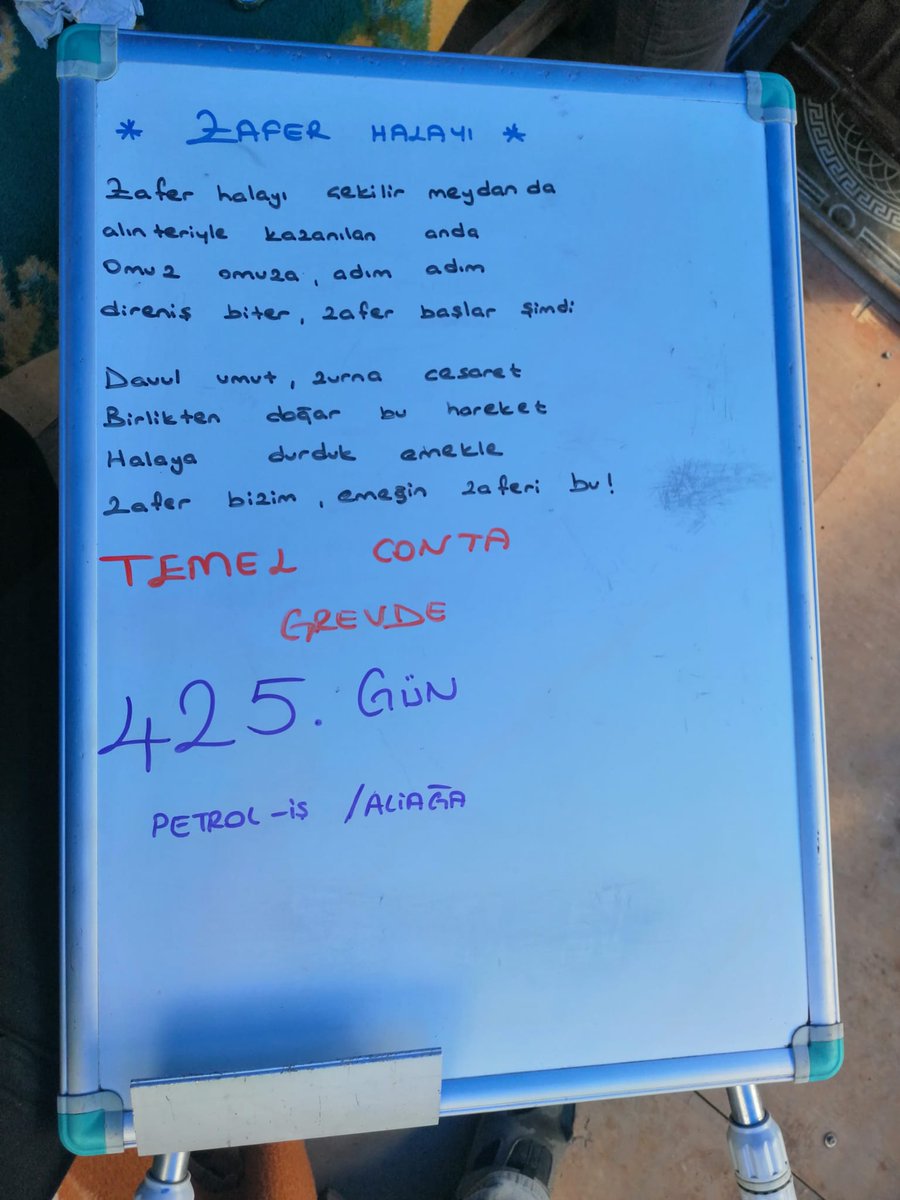 * ZAFER HALAYI *
Zafer halayı çekilir meydanda
alınteriyle kazanılan anda
Omuz omuza, adım adım
direniş biter, zafer başlar şimdi
Davul umut, zurna cesaret
Birlikten doğar bu hareket
Halaya durduk emekle
Zafer bizim, emeğin zaferi bu!
TEMEL CONTA
GREVDE
425. GÜN
PETROL-İŞ /ALİAĞA